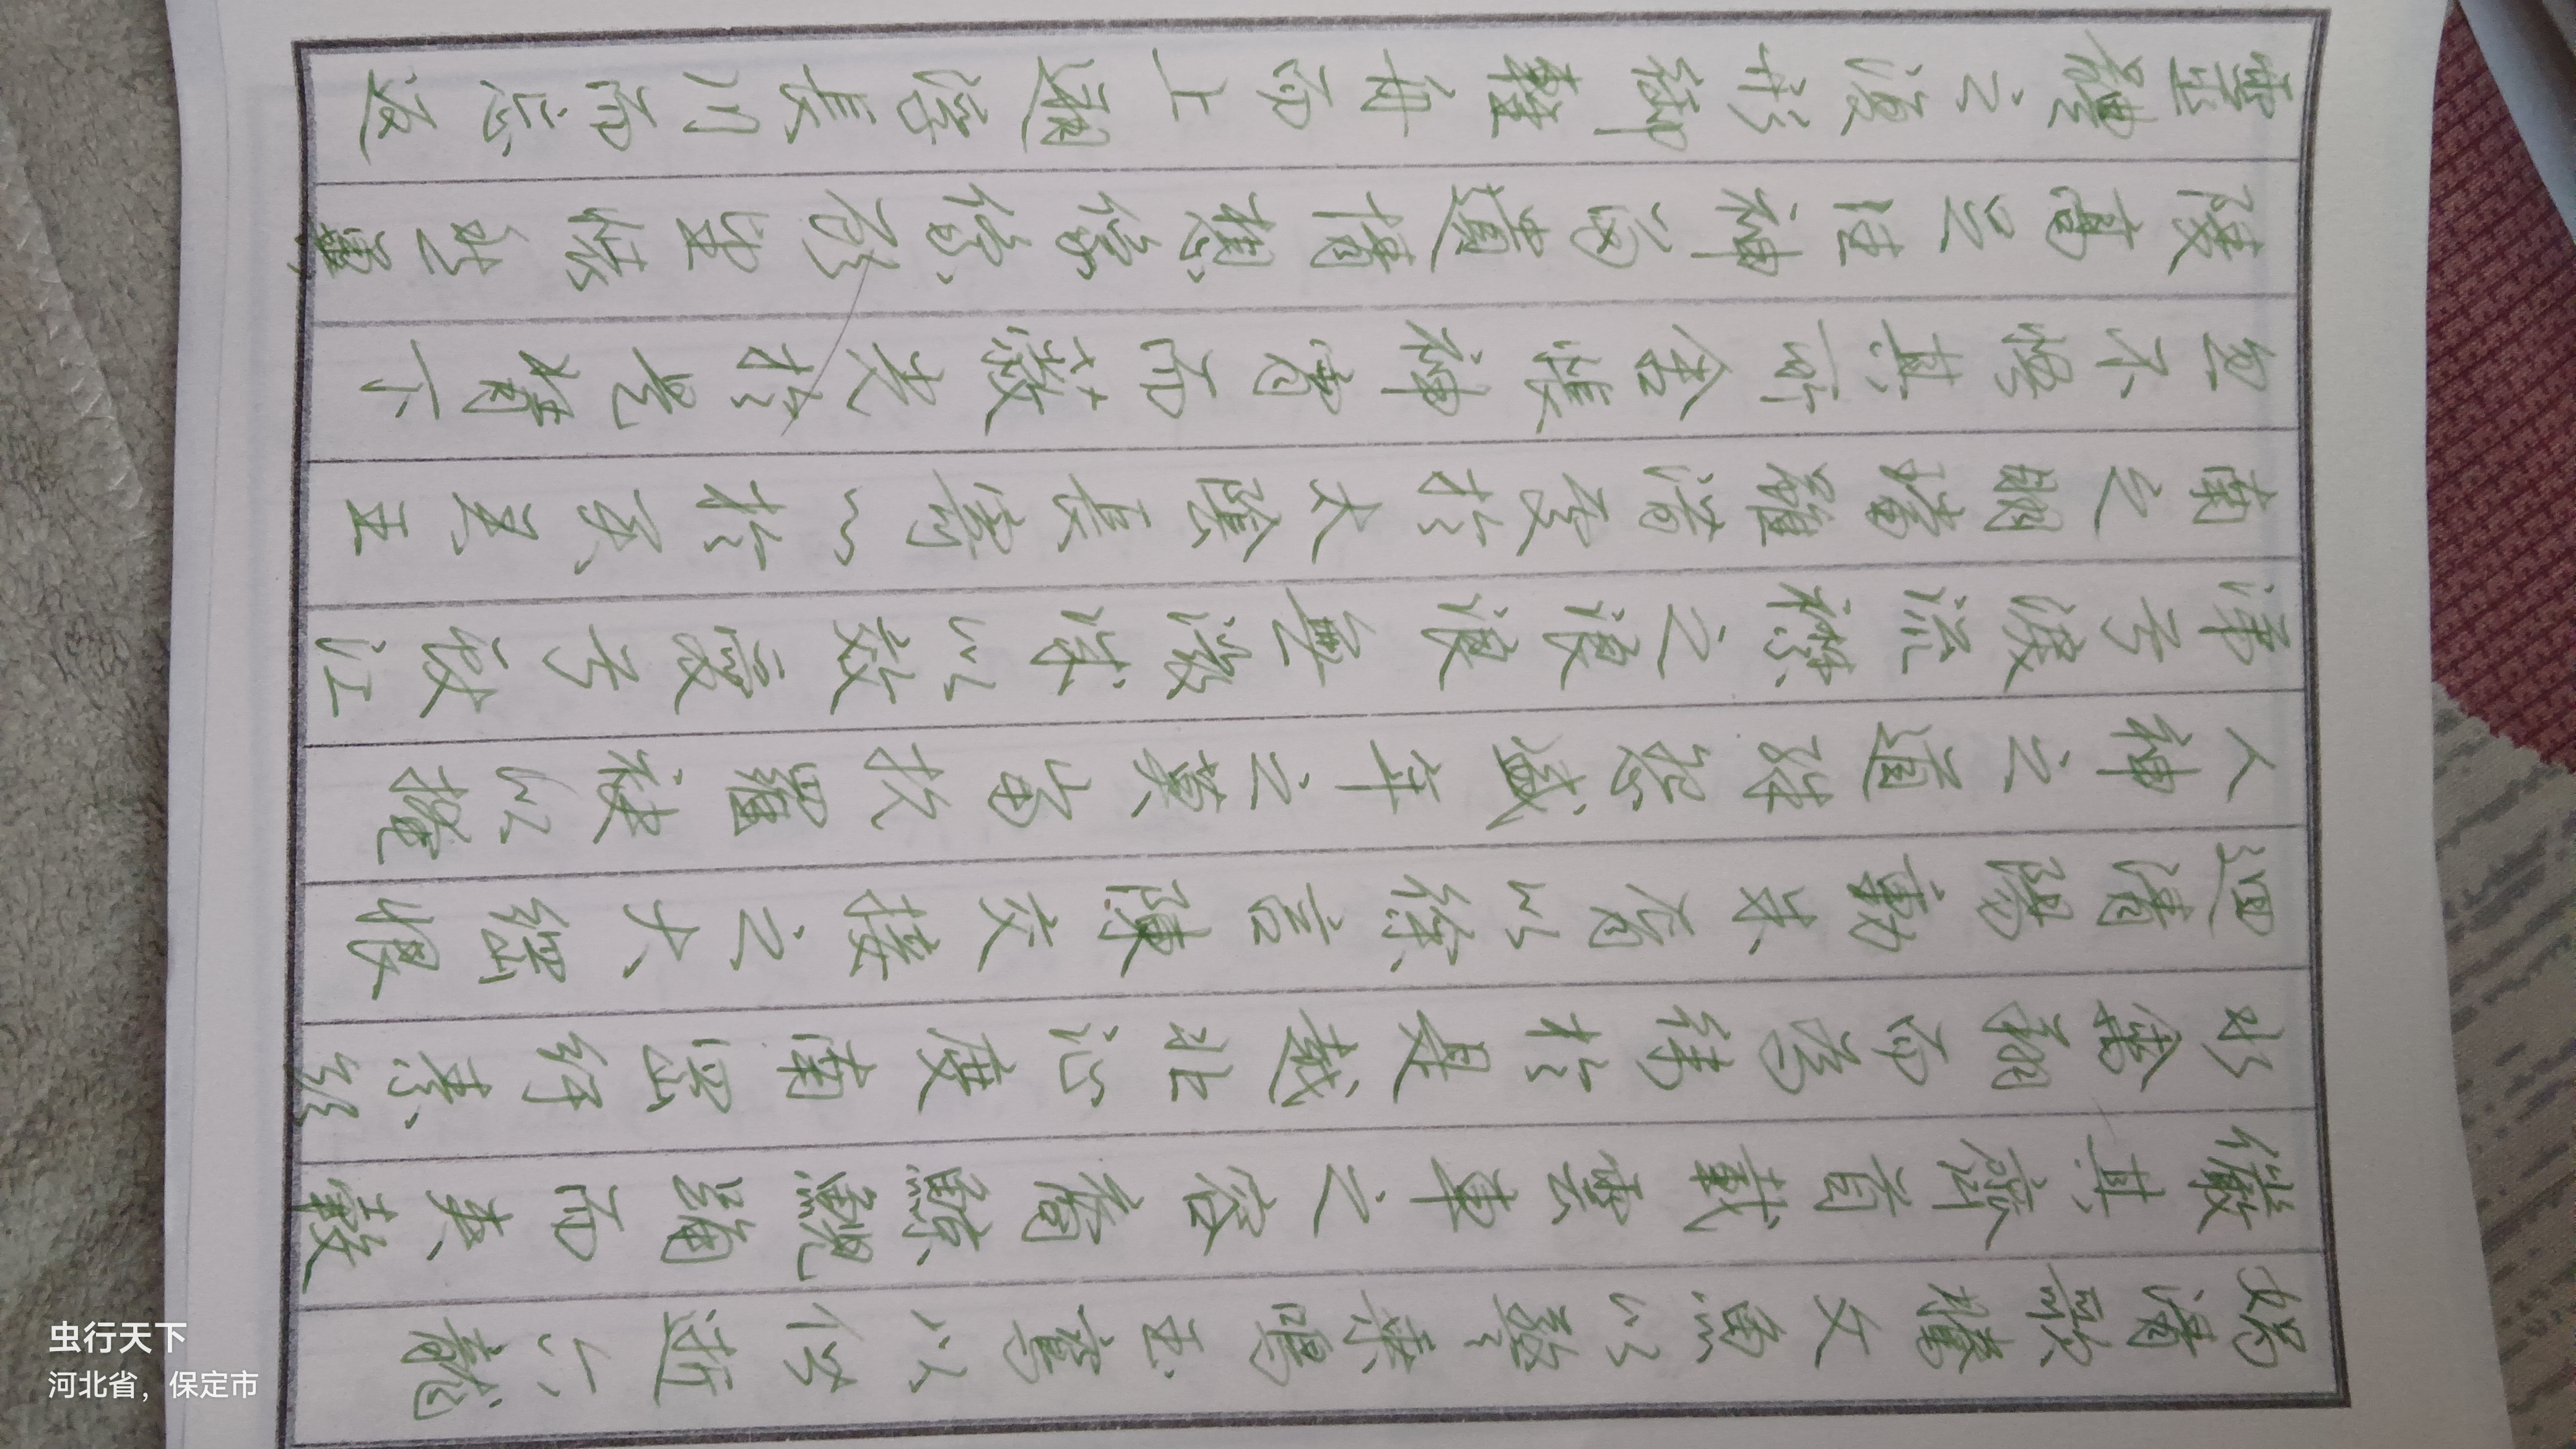 娲清歌騰文魚以警乘鳴玉鸞以偕逝六龍
儼其齊首載雲車之容裔鯨鯢踊而夾轂
水禽翔而為衛於是越北沚度南岡紆素領
迴清陽動朱唇以徐言陳交接之大綱恨
人神之道殊怨盛年之莫當抗羅袂以掩
涕兮淚流襟之浪浪無微情以效愛兮獻江
南之明璫雖潛處於太陰長寄心於君王
忽不悟其所舍悵神宵而蔽光於是背下
陵高足往神留遺情想像顧望懷愁冀
靈體之復形御輕舟而上遡浮長川而忘反
虫行天下
河北省，保定市